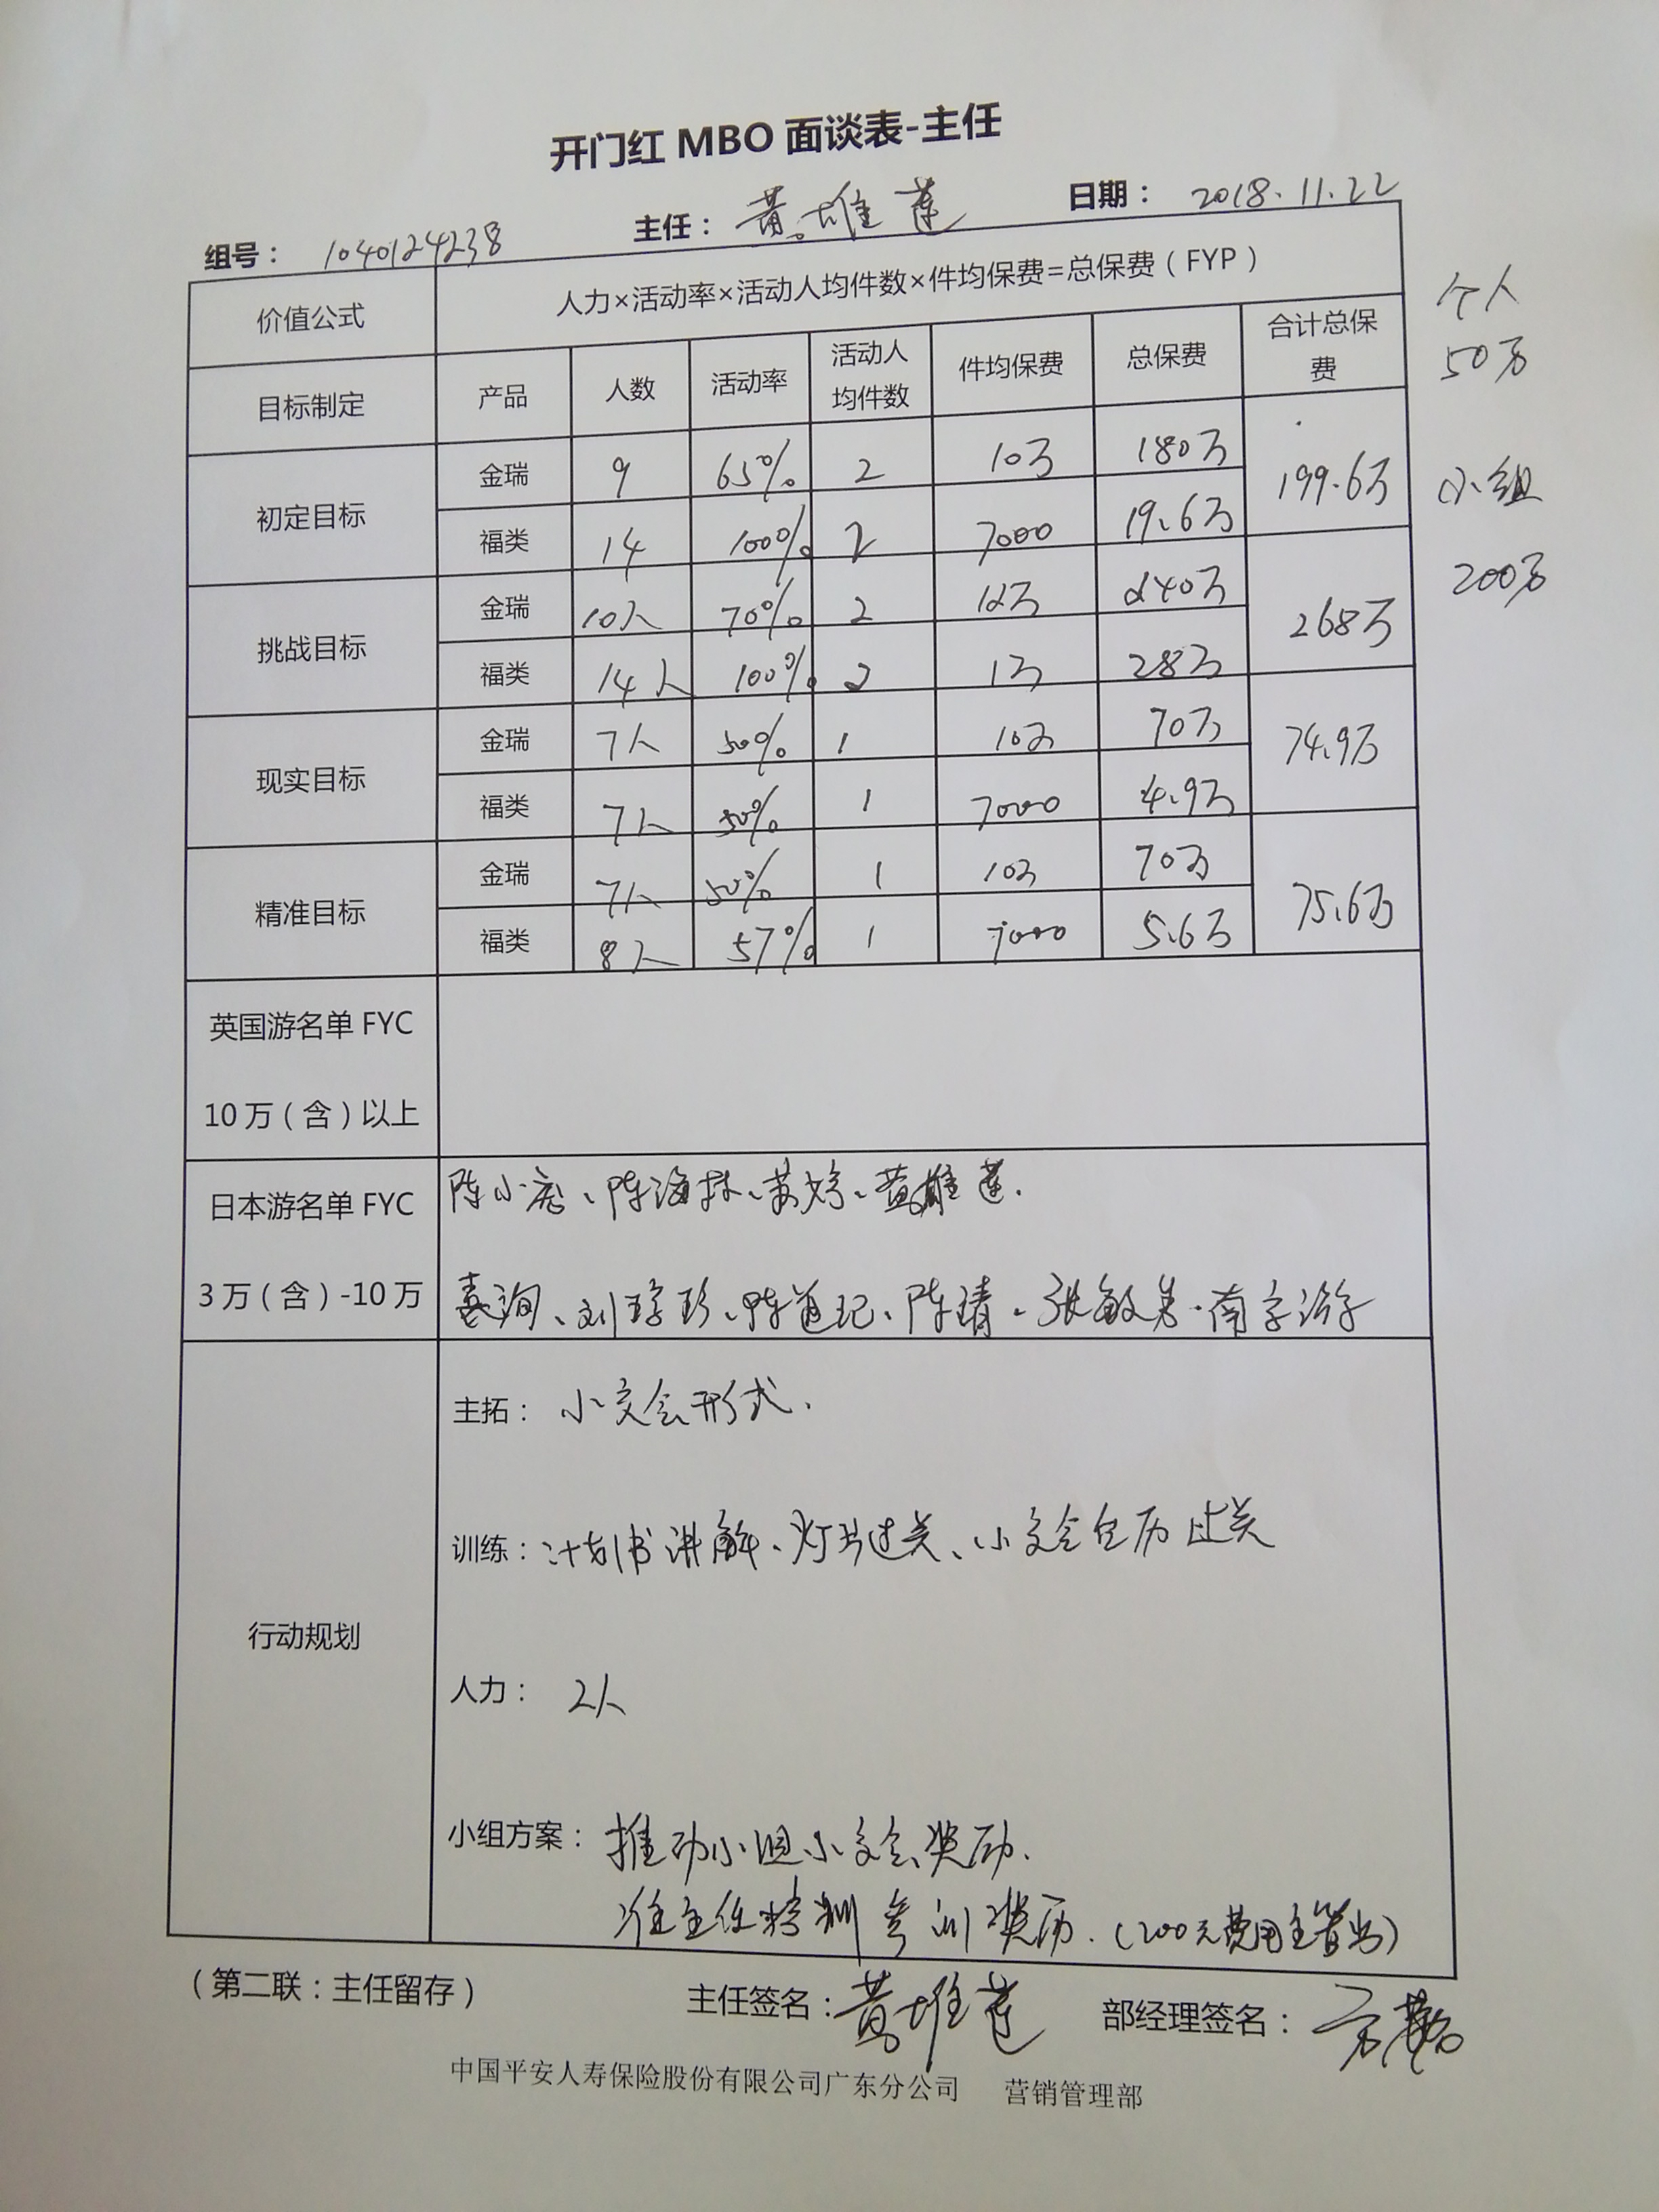 开门红 MBO 面谈表-主任
组号： 1040124238 主任： 黄雄莲 日期： 2018.11.22
价值公式 人力×活动率×活动人均件数×件均保费=总保费（FYP）
目标制定 产品 人数 活动率 活动人均件数 件均保费 总保费 合计总保费
初定目标 金瑞 9 65% 2 10万 180万 199.6万
福类 14 100% 2 7000 19.6万
挑战目标 金瑞 10人 70% 2 12万 240万 268万
福类 14人 100% 2 1万 28万
现实目标 金瑞 7人 50% 1 10万 70万 74.9万
福类 7人 50% 1 7000 4.9万
精准目标 金瑞 7人 50% 1 10万 70万 75.6万
福类 8人 57% 1 7000 5.6万
个人
50万
小组
200万
英国游名单 FYC
10 万（含）以上
日本游名单 FYC
3 万（含）-10 万
陈小 、陈海 、黄 、黄雄莲.
、刘 珍、陈 、陈靖、张敏
行动规划
主拓： 小交会形式.
训练： 计划书讲解、 过关、小交会 过关
人力： 2人
小组方案： 推动小组小交会奖励.
准主任特训参训奖历.（200元费用主管出）
（第二联：主任留存） 主任签名： 黄雄莲 部经理签名：
中国平安人寿保险股份有限公司广东分公司 营销管理部